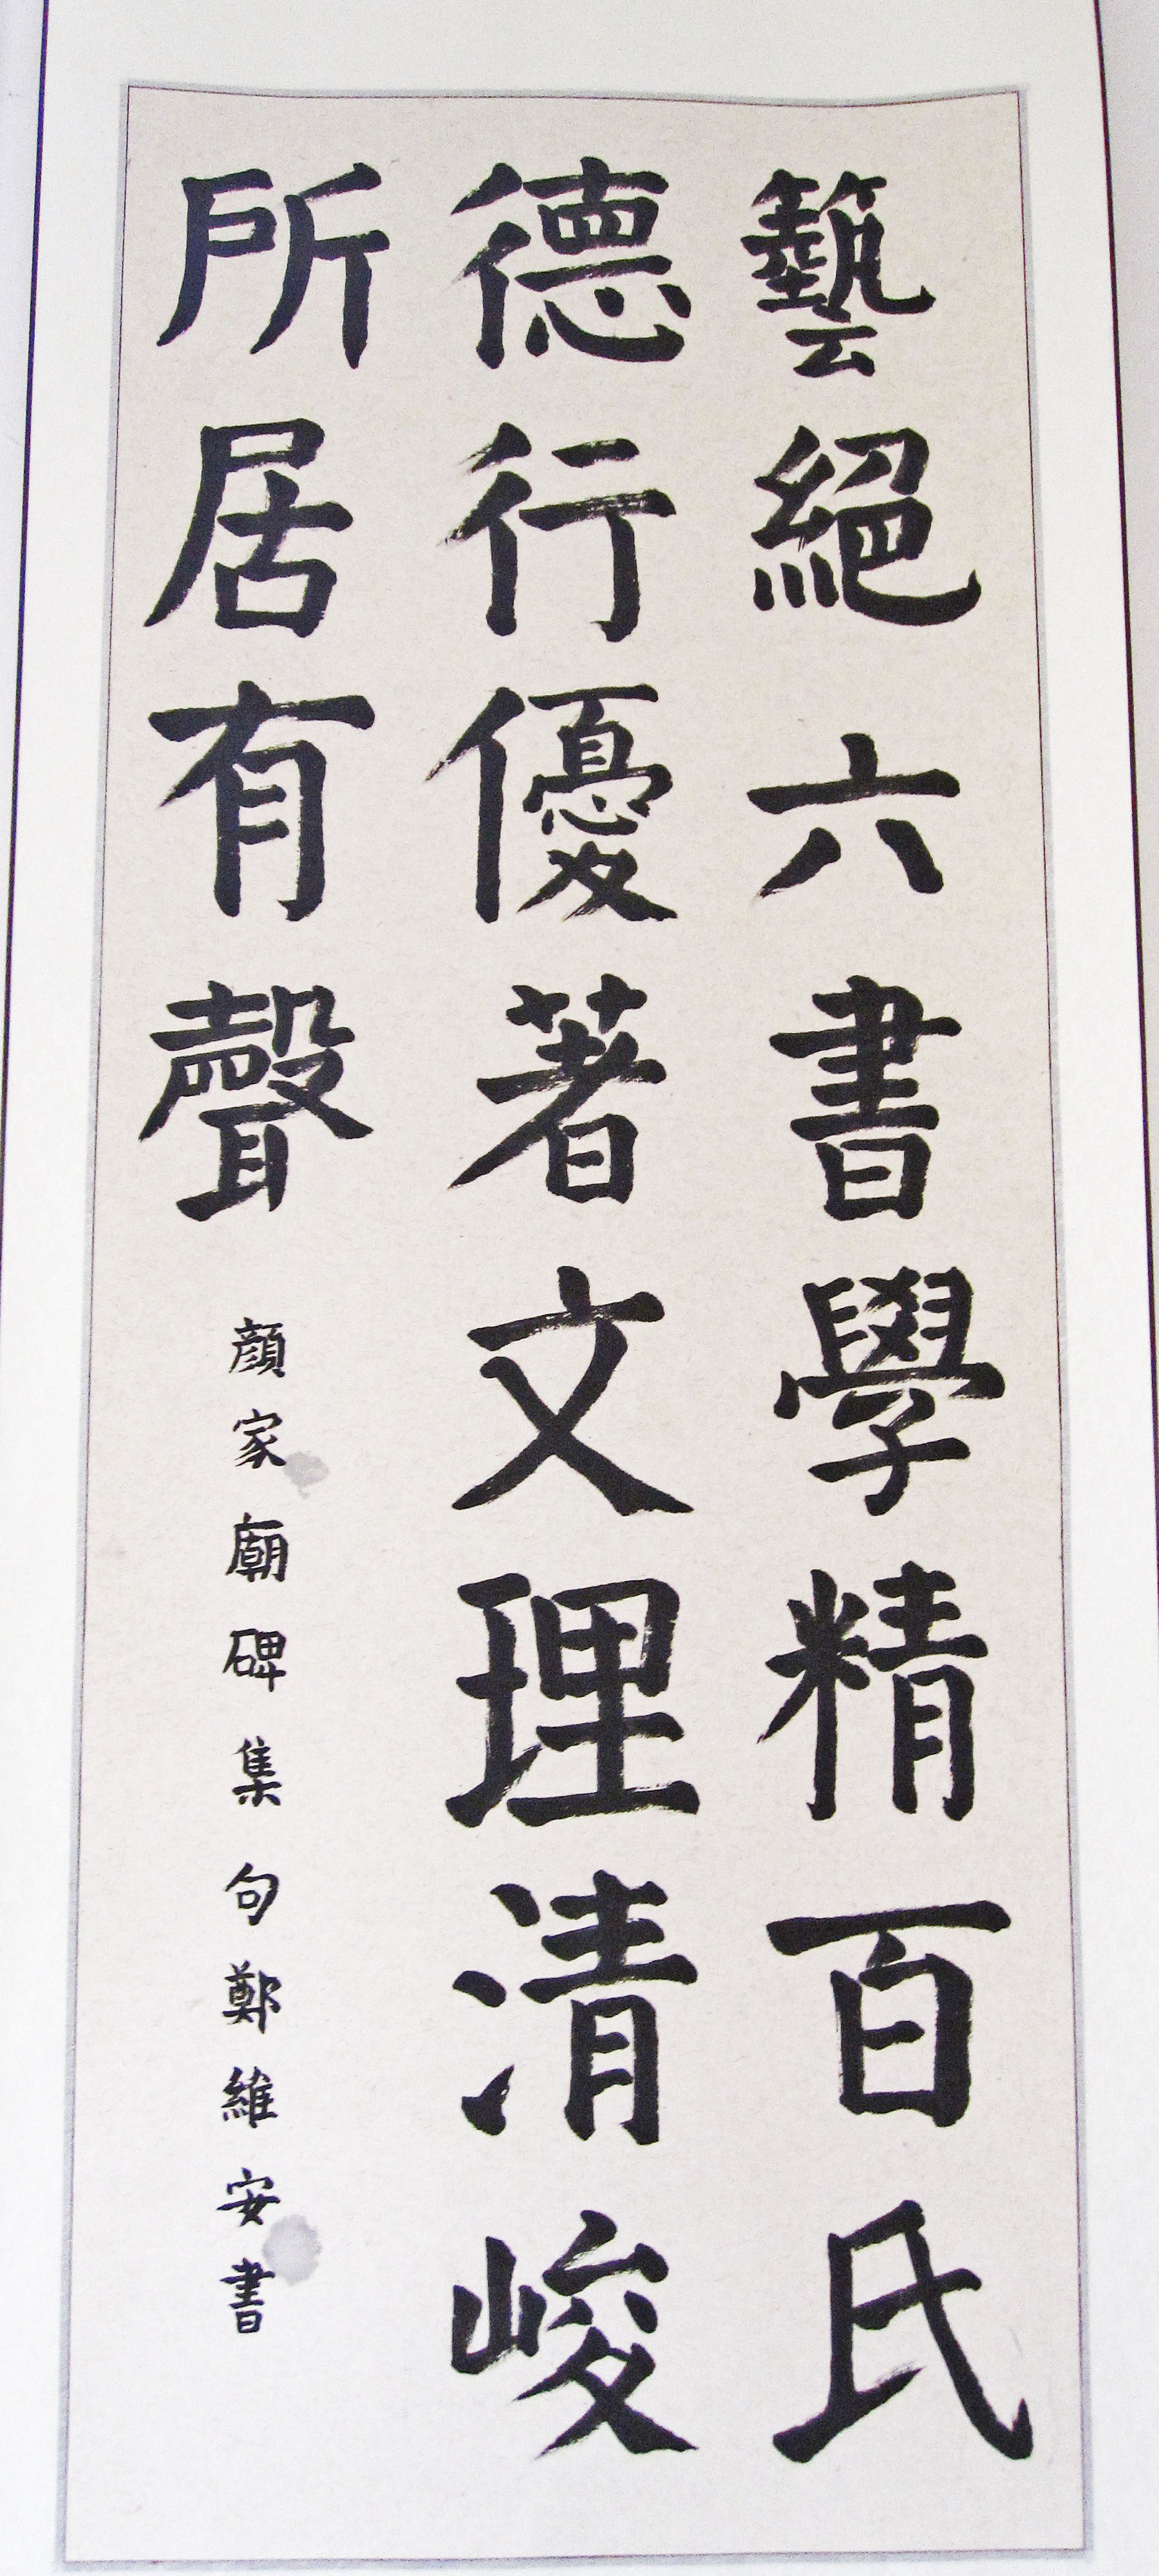 藝絕六書學精百氏
德行優著文理清峻
所居有聲
顏家廟碑集句鄭維安書